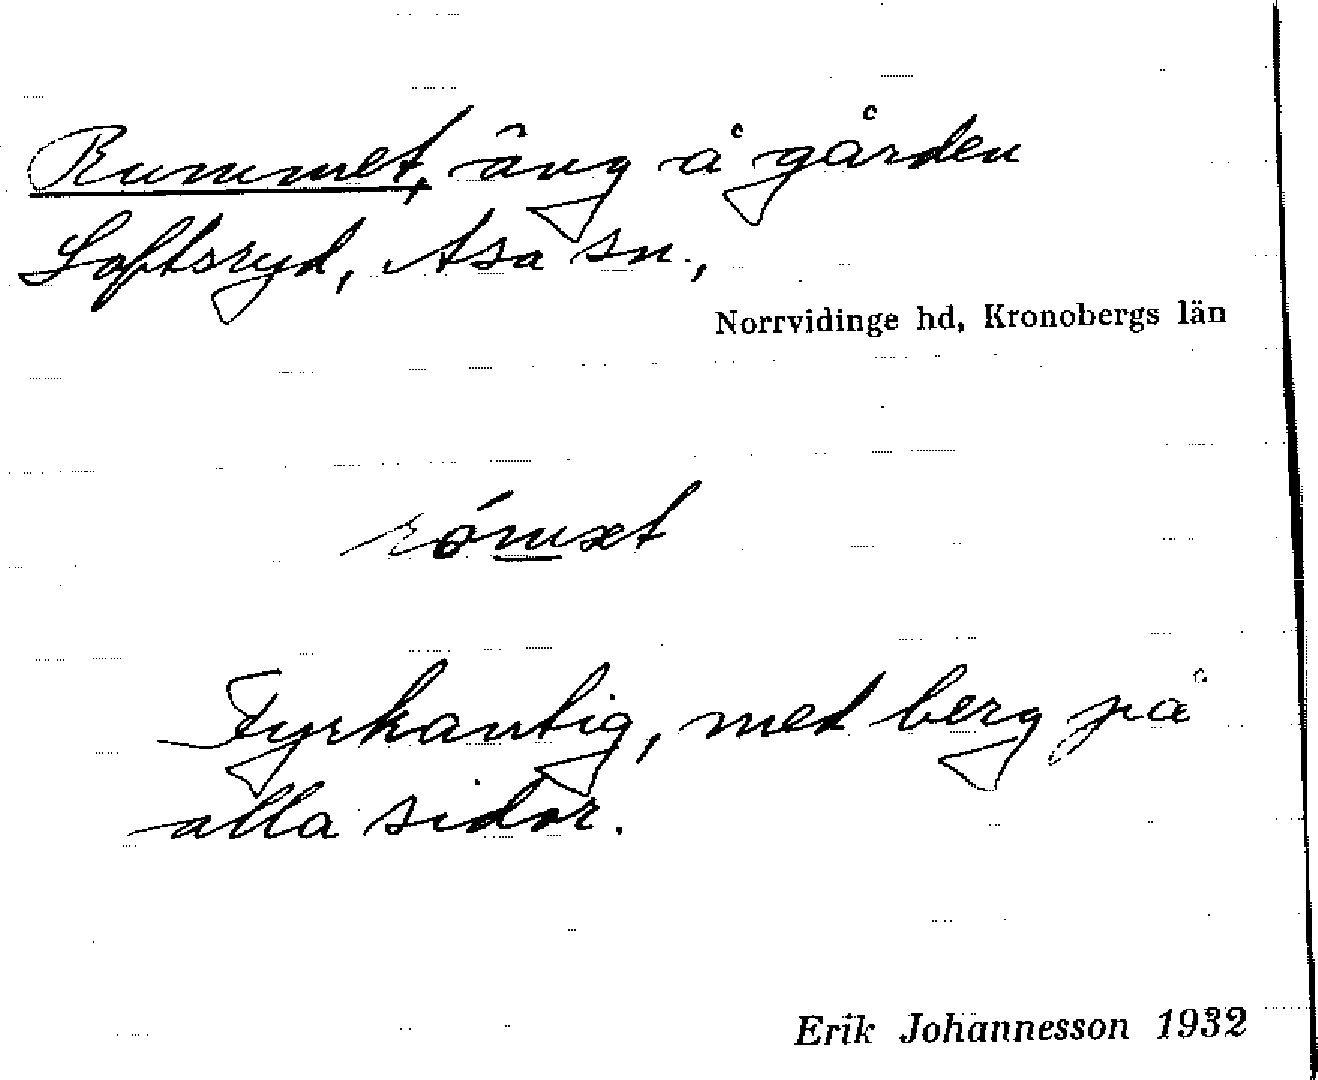 Rummet, äng å gården
Loftsryd, Asa sn.,
Norrvidinge hd, Kronobergs län
rómxt
Fyrkantig, med berg på
alla sidor.
Erik Johannesson 1932